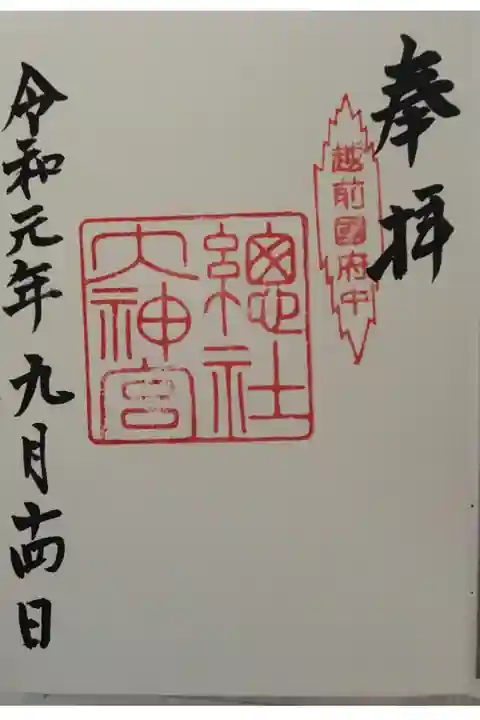 奉拝
越前國府中
總社
大神宮
令和元年九月十四日